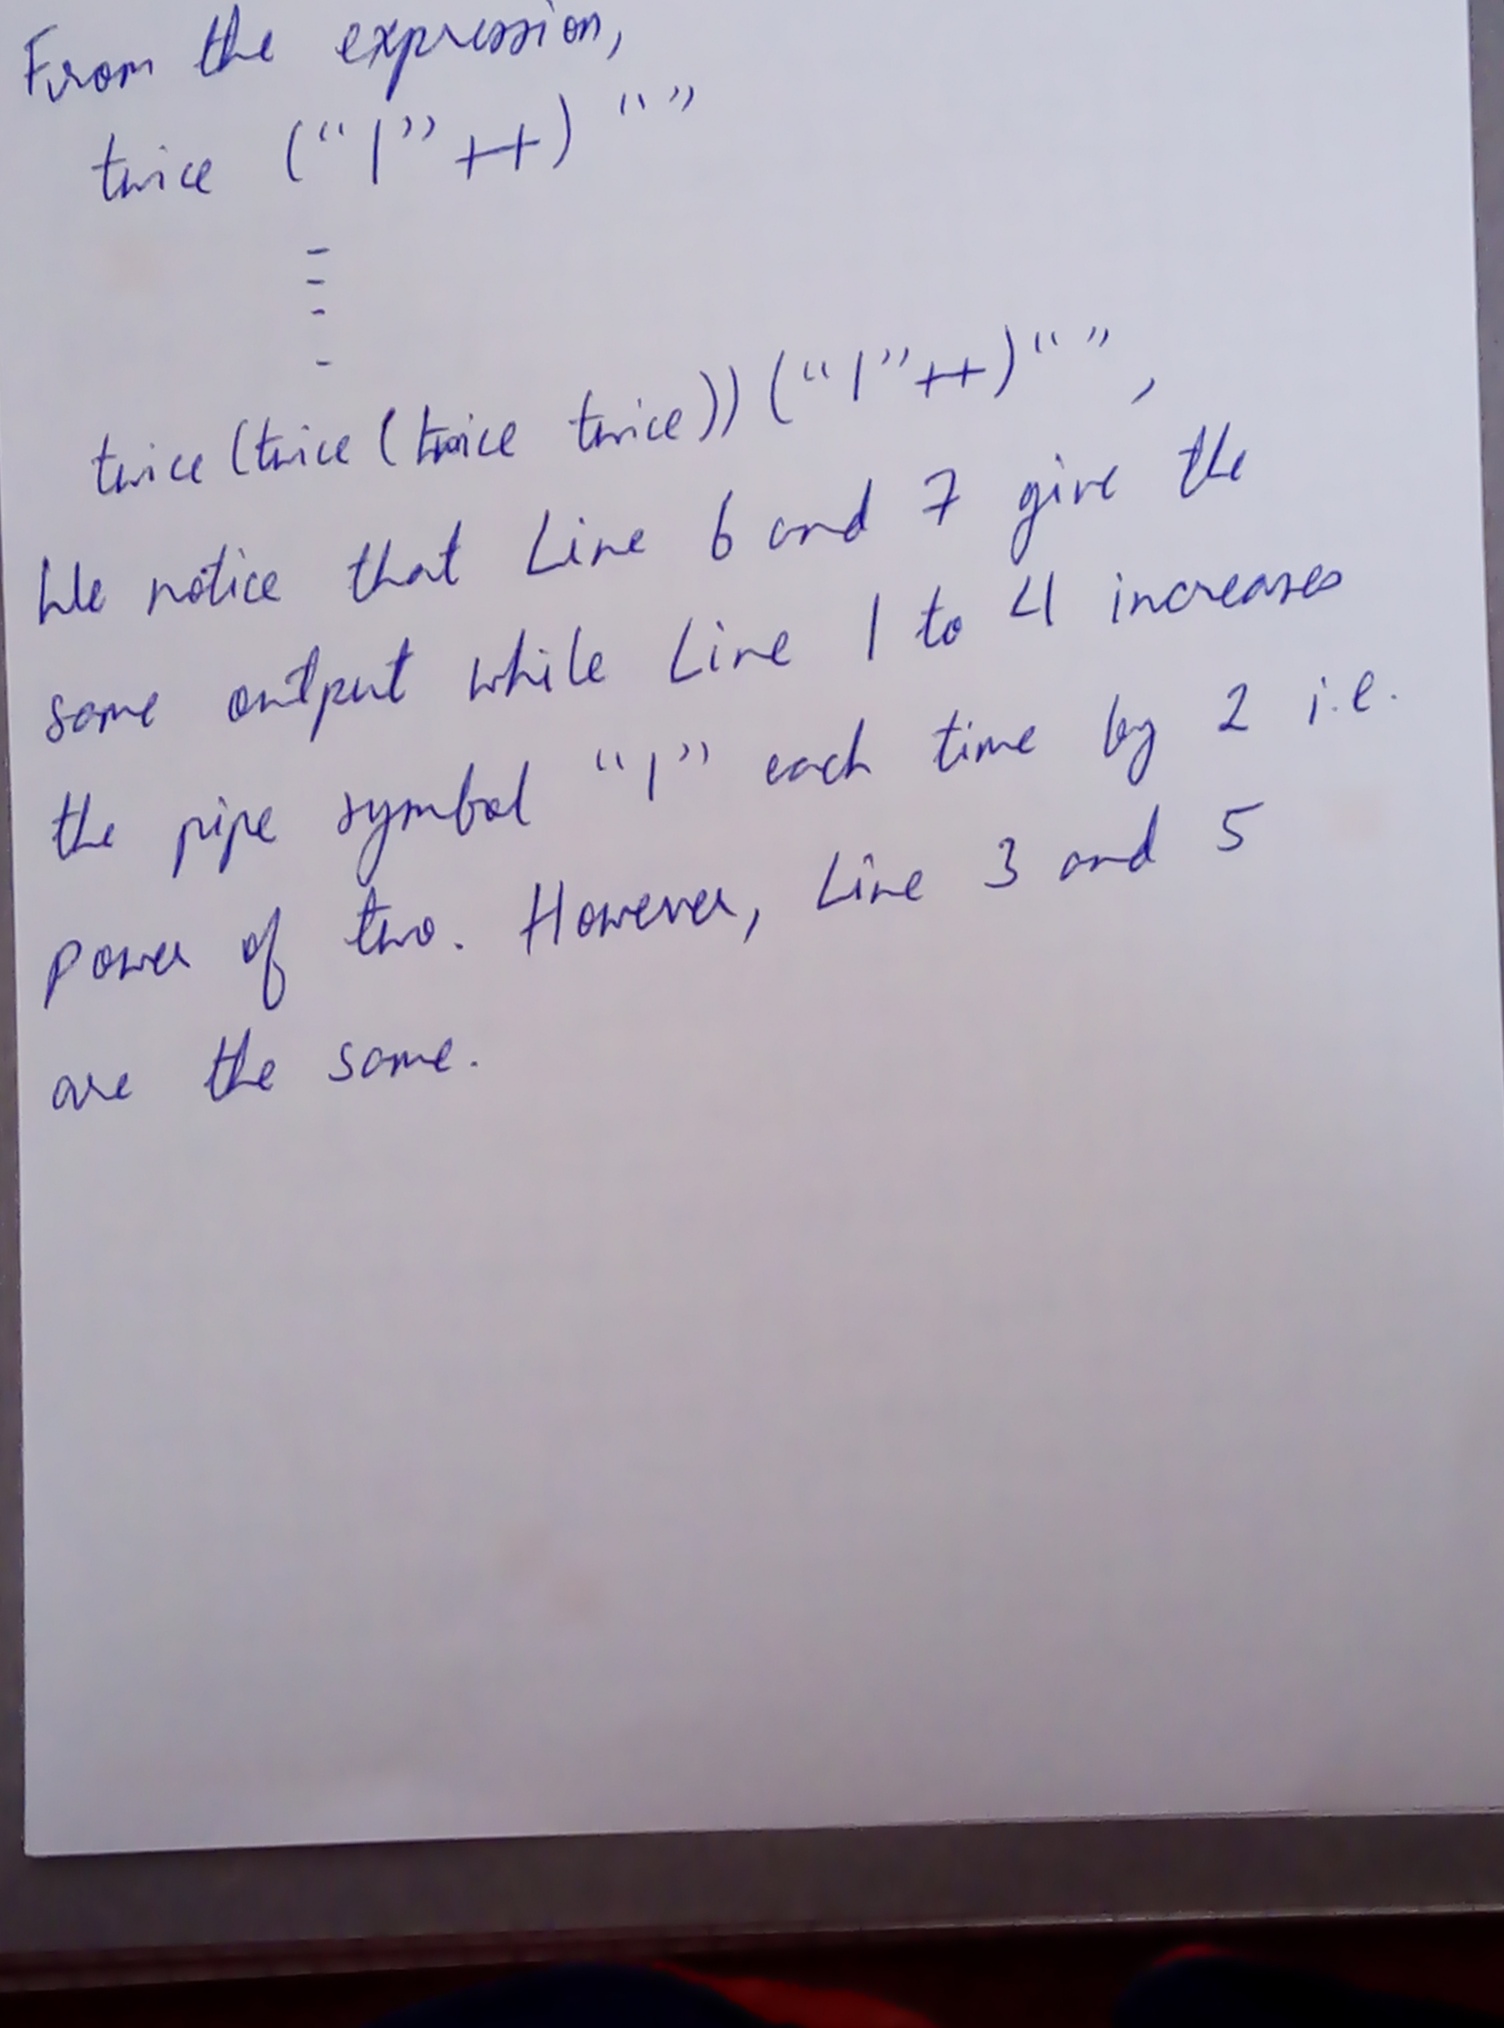 From the expression,
twice (“|” ++) “ ”
-
-
-
-
twice (twice (twice twice)) (“|” ++) “ ”,
We notice that Line 6 and 7 give the
same output while Line 1 to 4 increases
the pipe symbol “|” each time by 2 i.e.
power of two. However, Line 3 and 5
are the same.